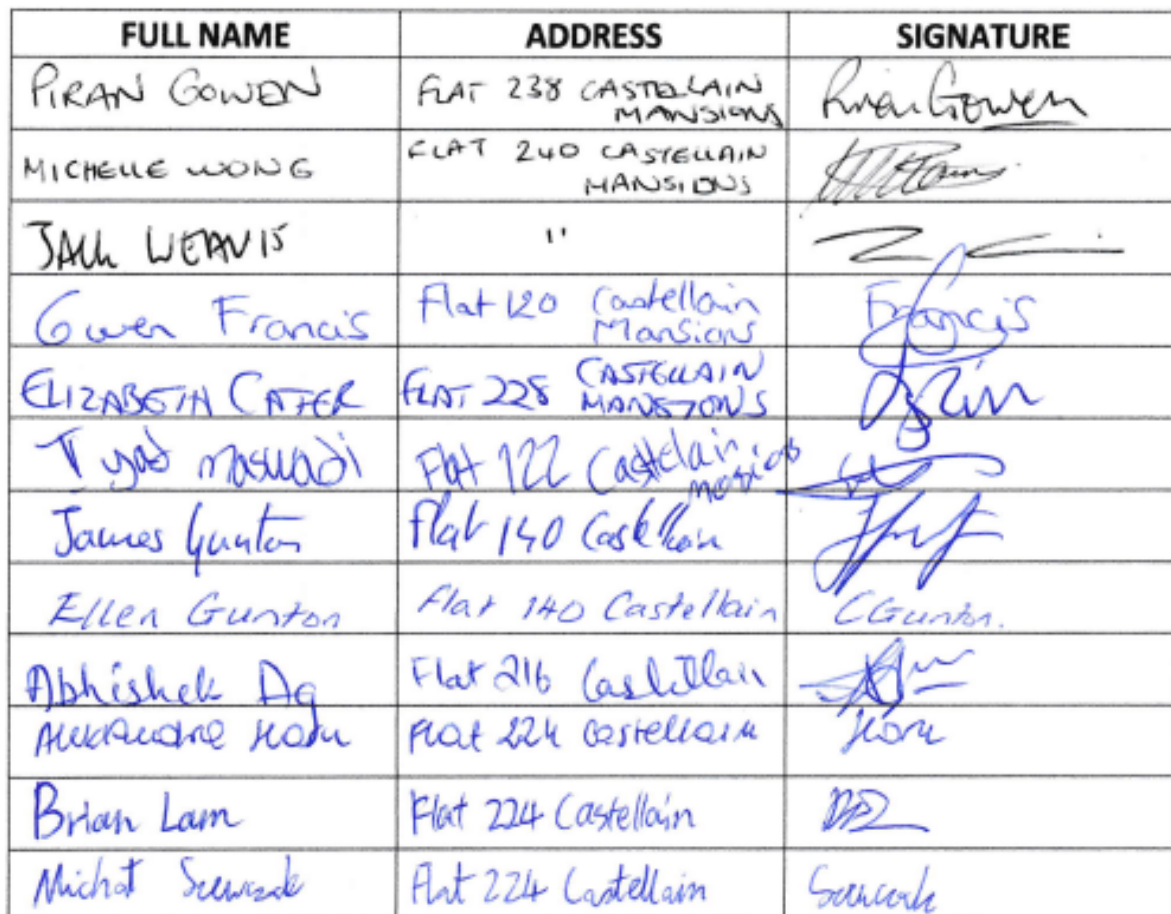 FULL NAME ADDRESS SIGNATURE
PIRAN GOWEN FLAT 238 CASTELLAIN MANSIONS Piran Gowen
MICHELLE WONG FLAT 240 CASTELLAIN MANSIONS
JACK "
Gwen Francis Flat 120 Castellain Mansions Francis
ELIZABETH CATER FLAT 228 CASTELLAIN MANSIONS
Maswadi Flat 122 Castelain
James Gunton Flat 140 Castellain
Ellen Gunton Flat 140 Castellain EGunton.
Abhishek Ag Flat 216 Castellain
Flat 224 Castellain
Brian Lam Flat 224 Castellain
Flat 224 Castellain